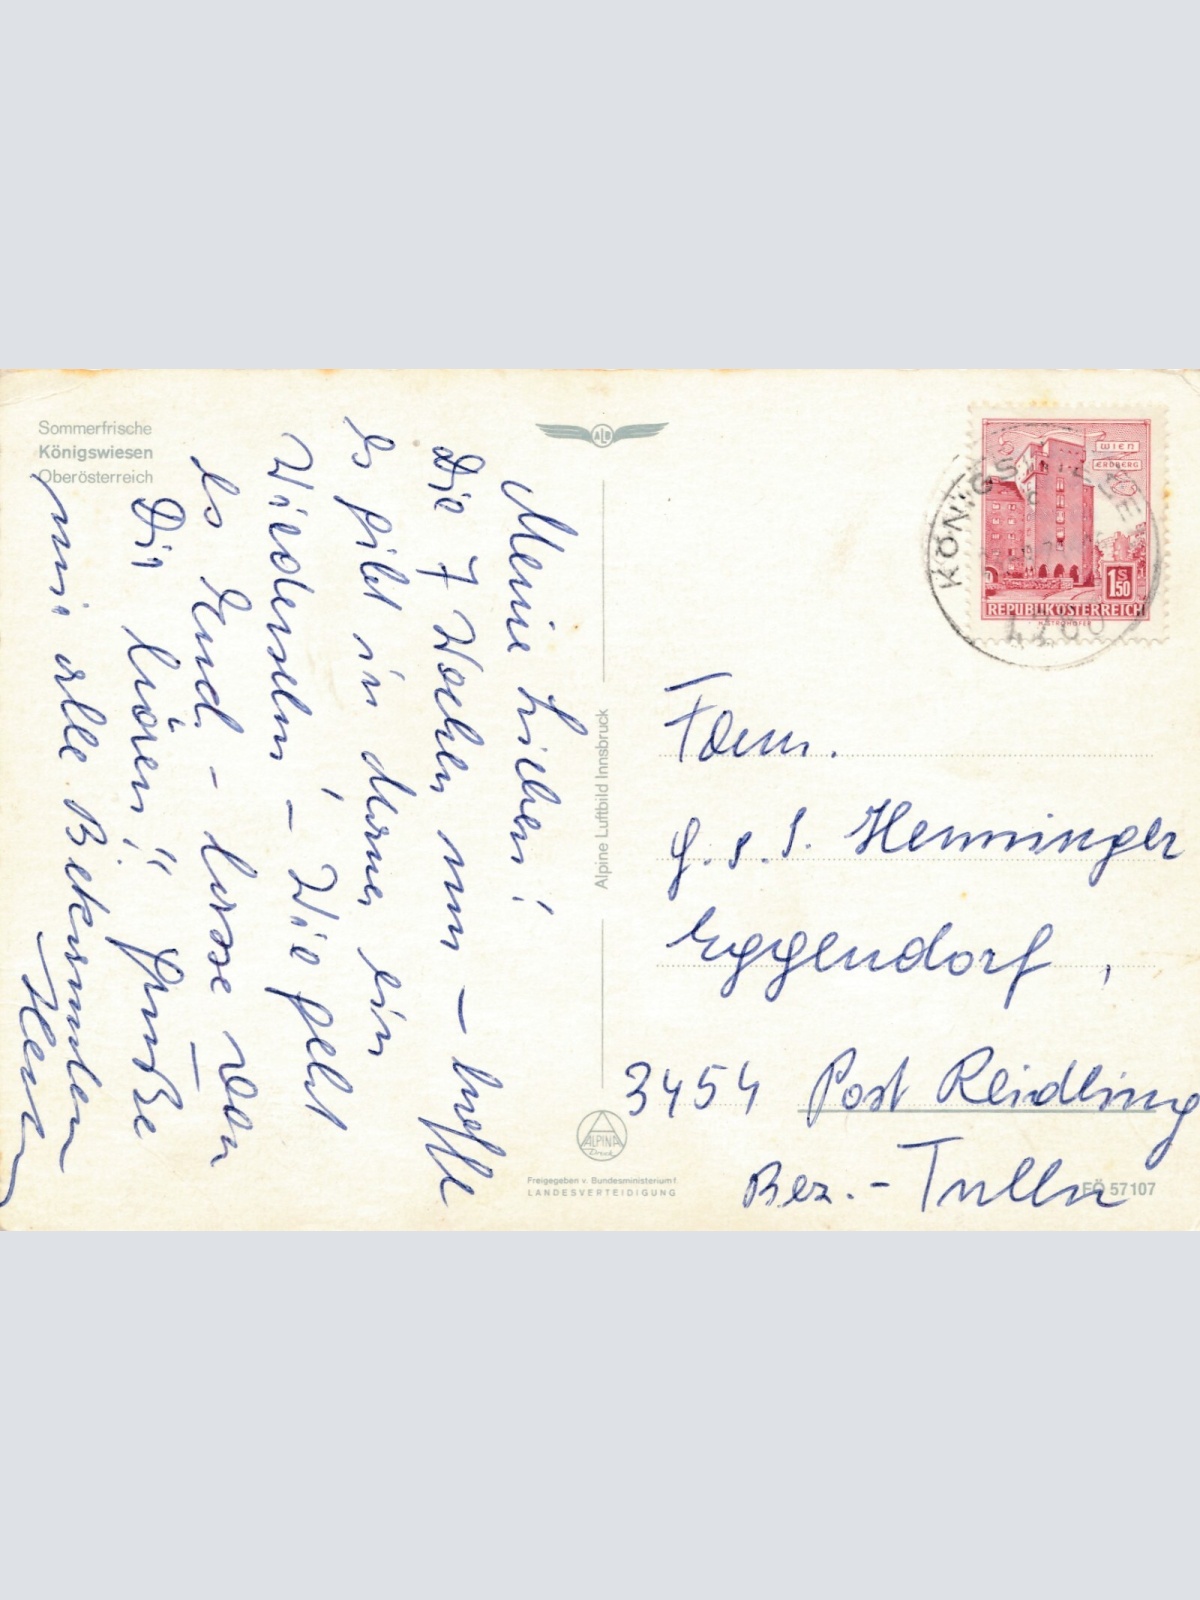 Sommerfrische
Königswiesen
Oberösterreich
Meine Lieben!
Die 7 Wochen um – hoffe
es gibt in dieser ein
Wiedersehn – Wie geht
es Euch – lasse von
Dir hören!! Grüße
mir alle Bekannten
ALB
Alpine Luftbild Innsbruck
ALPINA
Druck
Freigegeben v. Bundesministerium f.
LANDESVERTEIDIGUNG
WIEN
ERDBERG
1 S 50
REPUBLIK ÖSTERREICH
H. STROHOFER
KÖNIGSWIESEN
Fam.
Henninger
Eggendorf,
3454 Post Reidling
Bez. - Tulln
FÖ 57107